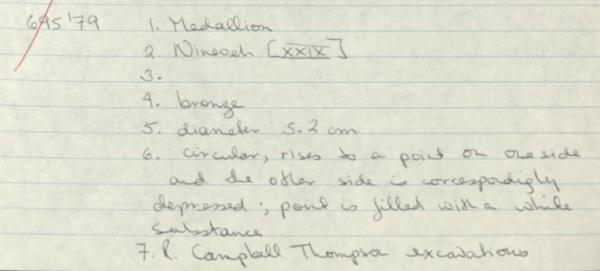 695'79 1. Medallion
2. Nineveh [XXIX]
3.
4. bronze
5. diameter 5.2 cm
6. circular, rises to a point on one side
and the other side is correspondingly
depressed; point is filled with a white
substance
7. R. Campbell Thompson excavations